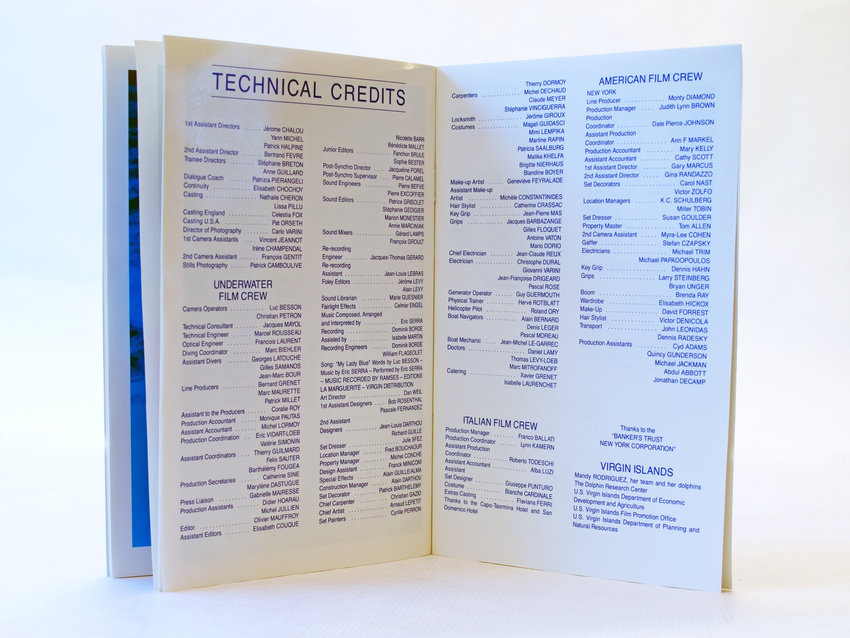 TECHNICAL CREDITS
1st Assistant Directors . . . Jérome CHALOU
Yann MICHEL
Patrick HALPINE
2nd Assistant Director . . . Bertrand FEVRE
Trainee Directors . . . Stéphane BRETON
Anne GUILLARD
Dialogue Coach . . . Patrizia PIERANGELI
Continuity . . . Elisabeth CHOCHOY
Casting . . . Nathalie CHERON
Lissa PILLU
Casting England . . . Celestia FOX
Casting U.S.A. . . . Pat ORSETH
Director of Photography . . . Carlo VARINI
1st Camera Assistants . . . Vincent JEANNOT
Irène CHAMPENDAL
2nd Camera Assistant . . . François GENTIT
Stills Photography . . . Patrick CAMBOULIVE
UNDERWATER
FILM CREW
Camera Operators . . . Luc BESSON
Christian PETRON
Technical Consultant . . . Jacques MAYOL
Technical Engineer . . . Marcel ROUSSEAU
Optical Engineer . . . François LAURENT
Diving Coordinator . . . Marc BIEHLER
Assistant Divers . . . Georges LATOUCHE
Gilles SAMANOS
Jean-Marc BOUR
Line Producers . . . Bernard GRENET
Marc MAURETTE
Patrick MILLET
Assistant to the Producers . . . Coralie ROY
Production Accountant . . . Monique PAUTAS
Assistant Accountant . . . Michel LORMOY
Production Coordination . . . Eric VIDART-LOEB
Valérie SIMONIN
Assistant Coordinators . . . Thierry GUILMARD
Felix SAUTER
Barthélémy FOUGEA
Production Secretaries . . . Catherine SINE
Marylène DASTUGUE
Press Liaison . . . Gabrielle MAIRESSE
Production Assistants . . . Didier HOARAU
Michel JULLIEN
Editor . . . Olivier MAUFFROY
Assistant Editors . . . Elisabeth COUQUE
Nicolette BARR
Bénédicte MALLET
Junior Editors . . . Fanchon BRULE
Sophie BESTER
Post-Synchro Director . . . Jacqueline POREL
Post-Synchro Supervisor . . . Pierre CALAMEL
Sound Engineers . . . Pierre BEFVE
Pierre EXCOFFIER
Sound Editors . . . Patrice GRISOLET
Stéphanie GEDIGIER
Marion MONESTIER
Anne MARCINIAK
Sound Mixers . . . Gérard LAMPS
François GROULT
Re-recording
Engineer . . . Jacques-Thomas GERARD
Re-recording
Assistant . . . Jean-Louis LEBRAS
Foley Editors . . . Jérôme LEVY
Alain LEVY
Sound Librarian . . . Marie GUESNIER
Fairlight Effects . . . Calmar ENGEL
Music Composed, Arranged
and Interpreted by . . . Eric SERRA
Recording . . . Dominik BORDE
Assisted by . . . Isabelle MARTIN
Recording Engineers . . . Dominik BORDE
William FLAGEOLET
Song: "My Lady Blue" Words by Luc BESSON –
Music by Eric SERRA – Performed by Eric SERRA
– MUSIC RECORDED BY RAMSES – EDITIONS
LA MARGUERITE – VIRGIN DISTRIBUTION
Art Director . . . Dan WEIL
1st Assistant Designers . . . Bob ROSENTHAL
Pascale FERNANDEZ
2nd Assistant
Designers . . . Jean-Louis DARTHOU
Richard GUILLE
Set Dresser . . . Julie SFEZ
Location Manager . . . Fred BOUCHAOUR
Property Manager . . . Michel CONCHE
Design Assistant . . . Franck MINICONI
Special Effects . . . Alain GUILLEALMA
Construction Manager . . . Alain DARTHOU
Set Decorator . . . Patrick BARTHELEMY
Chief Carpenter . . . Christian GAZIO
Chief Artist . . . Arnaud LEPETIT
Set Painters . . . Cyrille PERRON
Thierry DORMOY
Carpenters . . . Michel DECHAUD
Claude MEYER
Stéphanie VINCIGUERRA
Locksmith . . . Jérôme GIROUX
Costumes . . . Magali GUIDASCI
Mimi LEMPIKA
Martine RAPIN
Patricia SAALBURG
Malika KHELFA
Brigitte NIERHAUS
Blandine BOYER
Make-up Artist . . . Geneviève FEYRALADE
Assistant Make-up
Artist . . . Michèle CONSTANTINIDES
Hair Stylist . . . Catherine CRASSAC
Key Grip . . . Jean-Pierre MAS
Grips . . . Jacques BARBAZANGE
Gilles FLOQUET
Antoine VATON
Mario DORIO
Chief Electrician . . . Jean-Claude REUX
Electrician . . . Christophe DURAL
Giovanni VARINI
Jean-Françoise DRIGEARD
Pascal ROSE
Generator Operator . . . Guy GUERMOUTH
Physical Trainer . . . Hervé ROTBLATT
Helicopter Pilot . . . Roland ORY
Boat Navigators . . . Alain BERNARD
Denis LEGER
Pascal MOREAU
Boat Mechanic . . . Jean-Michel LE-GARREC
Doctors . . . Daniel LAMY
Thomas LEVY-LOEB
Marc MITROFANOFF
Catering . . . Xavier GRENET
Isabelle LAURENCHET
ITALIAN FILM CREW
Production Manager . . . Franco BALLATI
Production Coordinator . . . Lynn KAMERN
Assistant Production
Coordinator . . . Roberto TODESCHI
Assistant Accountant . . . Alba LUZI
Assistant
Set Designer . . . Giuseppe PUNTURO
Costume . . . Blanche CARDINALE
Extras Casting . . . Flaviana FERRI
Thanks to the Capo-Taormina Hotel and San
Domenico Hotel
AMERICAN FILM CREW
NEW YORK
Line Producer . . . Monty DIAMOND
Production Manager . . . Judith Lynn BROWN
Production
Coordinator . . . Dale Pierce JOHNSON
Assistant Production
Coordinator . . . Ann F MARKEL
Production Accountant . . . Mary KELLY
Assistant Accountant . . . Cathy SCOTT
1st Assistant Director . . . Gary MARCUS
2nd Assistant Director . . . Gina RANDAZZO
Set Decorators . . . Carol NAST
Victor ZOLFO
Location Managers . . . K.C. SCHULBERG
Miller TOBIN
Set Dresser . . . Susan GOULDER
Property Master . . . Tom ALLEN
2nd Camera Assistant . . . Myra-Lee COHEN
Gaffer . . . Stefan CZAPSKY
Electricians . . . Michael TRIM
Michael PAPADOPOULOS
Key Grip . . . Dennis HAHN
Grips . . . Larry STEINBERG
Bryan UNGER
Boom . . . Brenda RAY
Wardrobe . . . Elisabeth HICKOX
Make-Up . . . David FORREST
Hair Stylist . . . Victor DENICOLA
Transport . . . John LEONIDAS
Dennis RADESKY
Production Assistants . . . Cyd ADAMS
Quincy GUNDERSON
Michael JACKMAN
Abdul ABBOTT
Jonathan DECAMP
Thanks to the
"BANKER'S TRUST
NEW YORK CORPORATION"
VIRGIN ISLANDS
Mandy RODRIGUEZ, her team and her dolphins
The Dolphin Research Center
U.S. Virgin Islands Department of Economic
Development and Agriculture
U.S. Virgin Islands Film Promotion Office
U.S. Virgin Islands Department of Planning and
Natural Resources